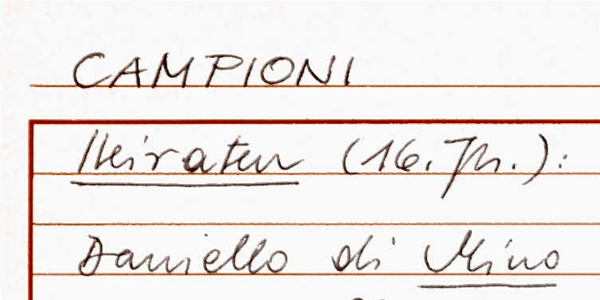 CAMPIONI
Heiraten (16. Jh.):
Daniello di Mino